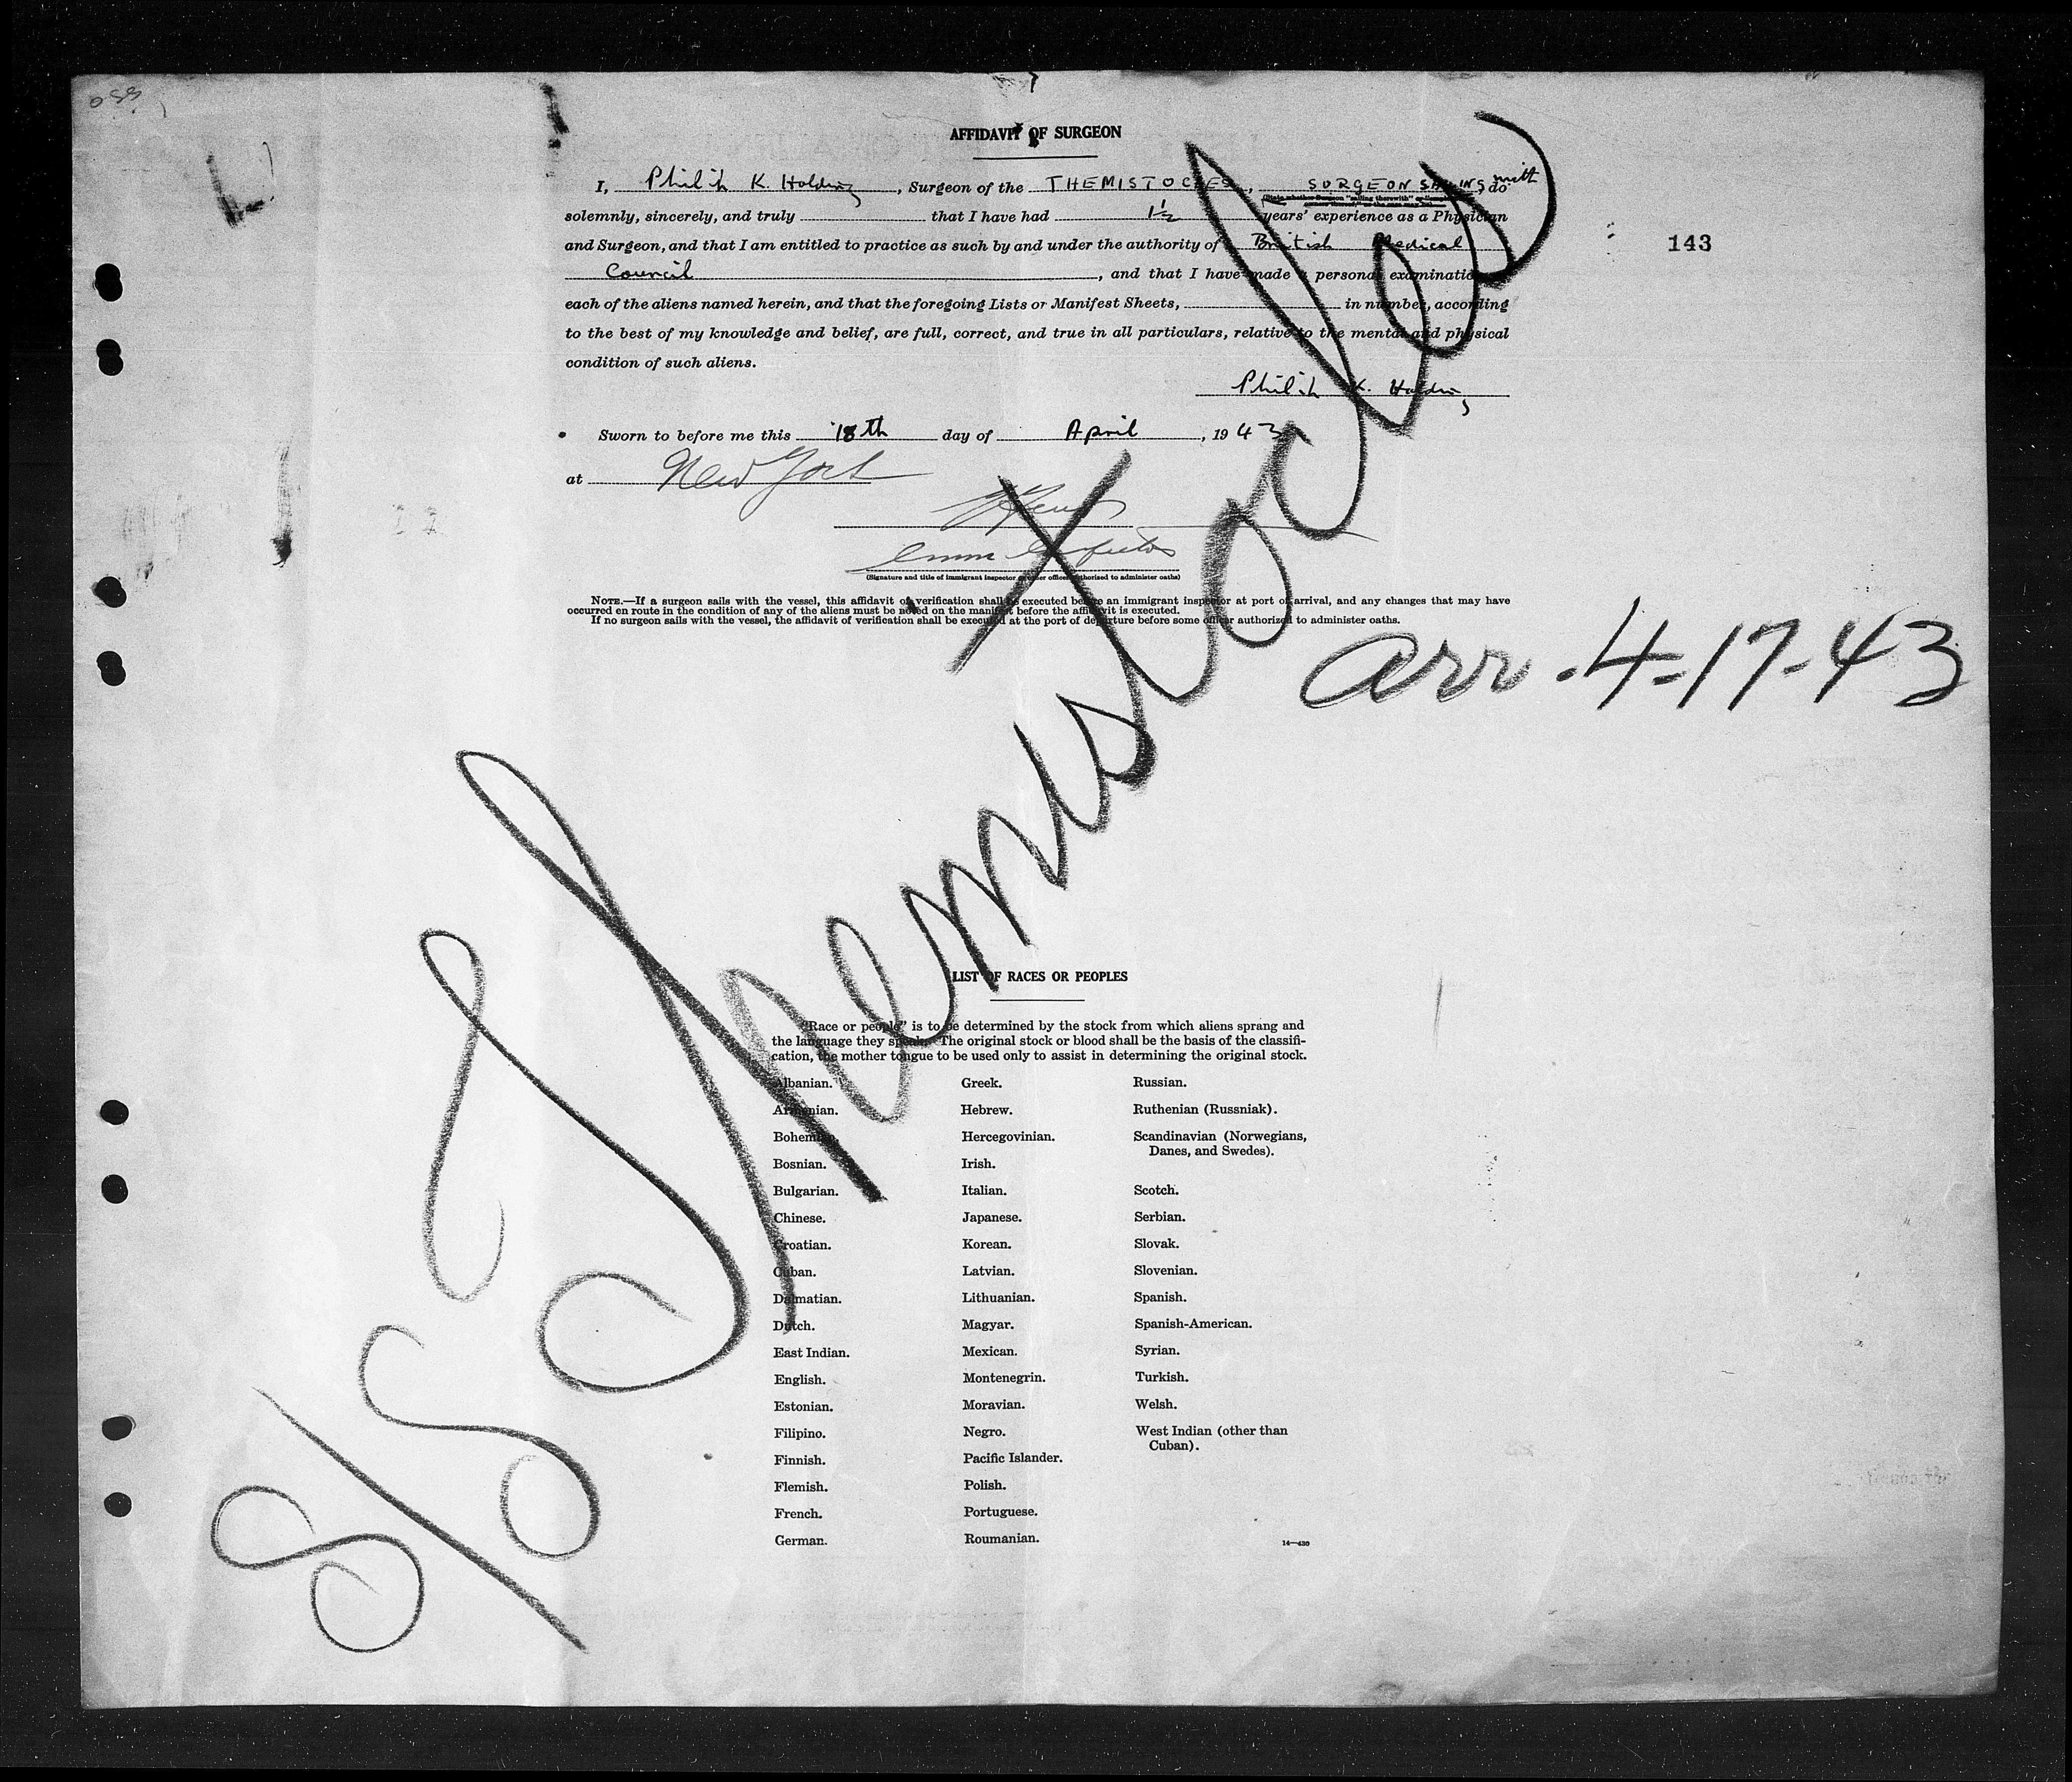 AFFIDAVIT OF SURGEON
I, Philip K. Holding, Surgeon of the THEMISTOCLES, SURGEON SAILING with, do
solemnly, sincerely, and truly that I have had 1½ years' experience as a Physician
and Surgeon, and that I am entitled to practice as such by and under the authority of British Medical
Council, and that I have made a personal examination
each of the aliens named herein, and that the foregoing Lists or Manifest Sheets, in number, according
to the best of my knowledge and belief, are full, correct, and true in all particulars, relative to the mental and physical
condition of such aliens.
Philip K. Holding
Sworn to before me this 18th day of April, 1943
at New York
(Signature and title of immigrant inspector or other officer authorized to administer oaths)
NOTE.—If a surgeon sails with the vessel, this affidavit of verification shall be executed before an immigrant inspector at port of arrival, and any changes that may have
occurred en route in the condition of any of the aliens must be noted on the manifest before the affidavit is executed.
If no surgeon sails with the vessel, the affidavit of verification shall be executed at the port of departure before some officer authorized to administer oaths.
143
arr. 4-17-43
S/S Themistocles
LIST OF RACES OR PEOPLES
"Race or people" is to be determined by the stock from which aliens sprang and
the language they speak. The original stock or blood shall be the basis of the classifi-
cation, the mother tongue to be used only to assist in determining the original stock.
Albanian.
Armenian.
Bohemian.
Bosnian.
Bulgarian.
Chinese.
Croatian.
Cuban.
Dalmatian.
Dutch.
East Indian.
English.
Estonian.
Filipino.
Finnish.
Flemish.
French.
German.
Greek.
Hebrew.
Hercegovinian.
Irish.
Italian.
Japanese.
Korean.
Latvian.
Lithuanian.
Magyar.
Mexican.
Montenegrin.
Moravian.
Negro.
Pacific Islander.
Polish.
Portuguese.
Roumanian.
Russian.
Ruthenian (Russniak).
Scandinavian (Norwegians,
Danes, and Swedes).
Scotch.
Serbian.
Slovak.
Slovenian.
Spanish.
Spanish-American.
Syrian.
Turkish.
Welsh.
West Indian (other than
Cuban).
14—430